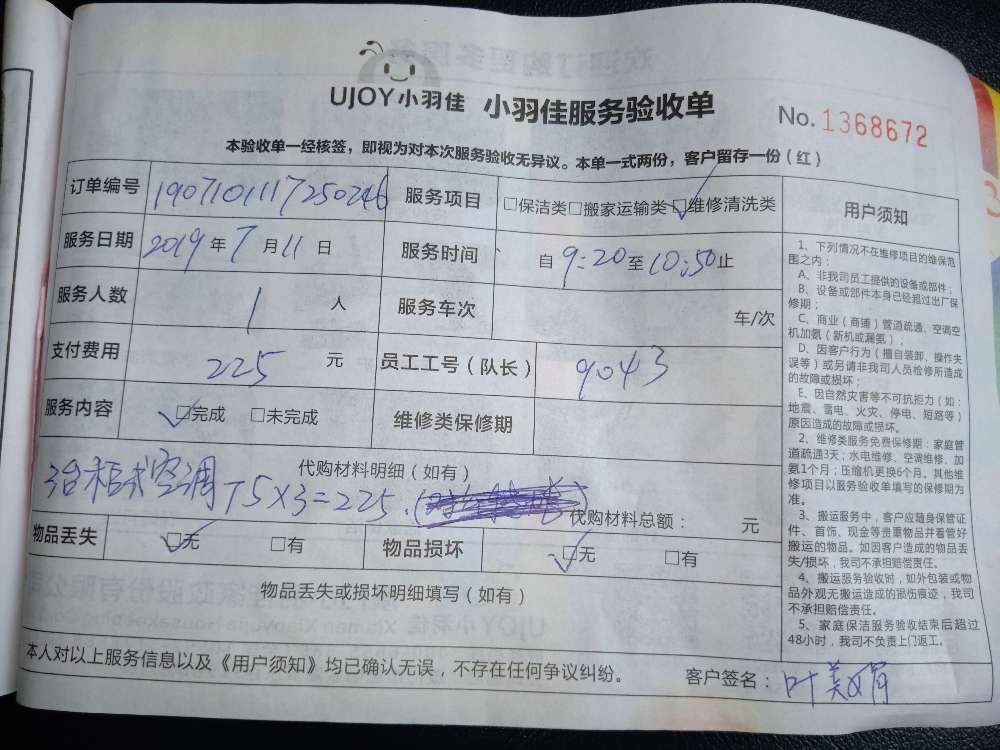 UJOY小羽佳 小羽佳服务验收单
No. 1368672
本验收单一经核签，即视为对本次服务验收无异议。本单一式两份，客户留存一份（红）
订单编号 1907101117250246 服务项目 □保洁类□搬家运输类☑维修清洗类
服务日期 2019年7月11日 服务时间 自9:20至10:50止
服务人数 1 人 服务车次 车/次
支付费用 225 元 员工工号（队长） 9043
服务内容 ☑完成 □未完成 维修类保修期
代购材料明细（如有）
3台柜式空调 75×3=225.
代购材料总额： 元
物品丢失 ☑无 □有 物品损坏 ☑无 □有
物品丢失或损坏明细填写（如有）
本人对以上服务信息以及《用户须知》均已确认无误，不存在任何争议纠纷。
客户签名：叶美娟
用户须知
1、下列情况不在维修项目的维保范
围之内：
A、非我司员工提供的设备或部件；
B、设备或部件本身已经超过出厂保
修期；
C、商业（商铺）管道疏通、空调空
机加氨（新机或漏氨）；
D、因客户行为（擅自装卸、操作失
误等）或另请非我司人员检修所造成
的故障或损坏；
E、因自然灾害等不可抗拒力（如：
地震、雷电、火灾、停电、短路等）
原因造成的故障或损坏。
2、维修类服务免费保修期：家庭管
道疏通3天；水电维修、空调维修、加
氨1个月；压缩机更换6个月。其他维
修项目以服务验收单填写的保修期为
准。
3、搬运服务中，客户应随身保管证
件、首饰、现金等贵重物品并看管好
搬运的物品。如因客户造成的物品丢
失/损坏，我司不承担赔偿责任。
4、搬运服务验收时，如外包装或物
品外观无搬运造成的损伤痕迹，我司
不承担赔偿责任。
5、家庭保洁服务验收结束后超过
48小时，我司不负责上门返工。